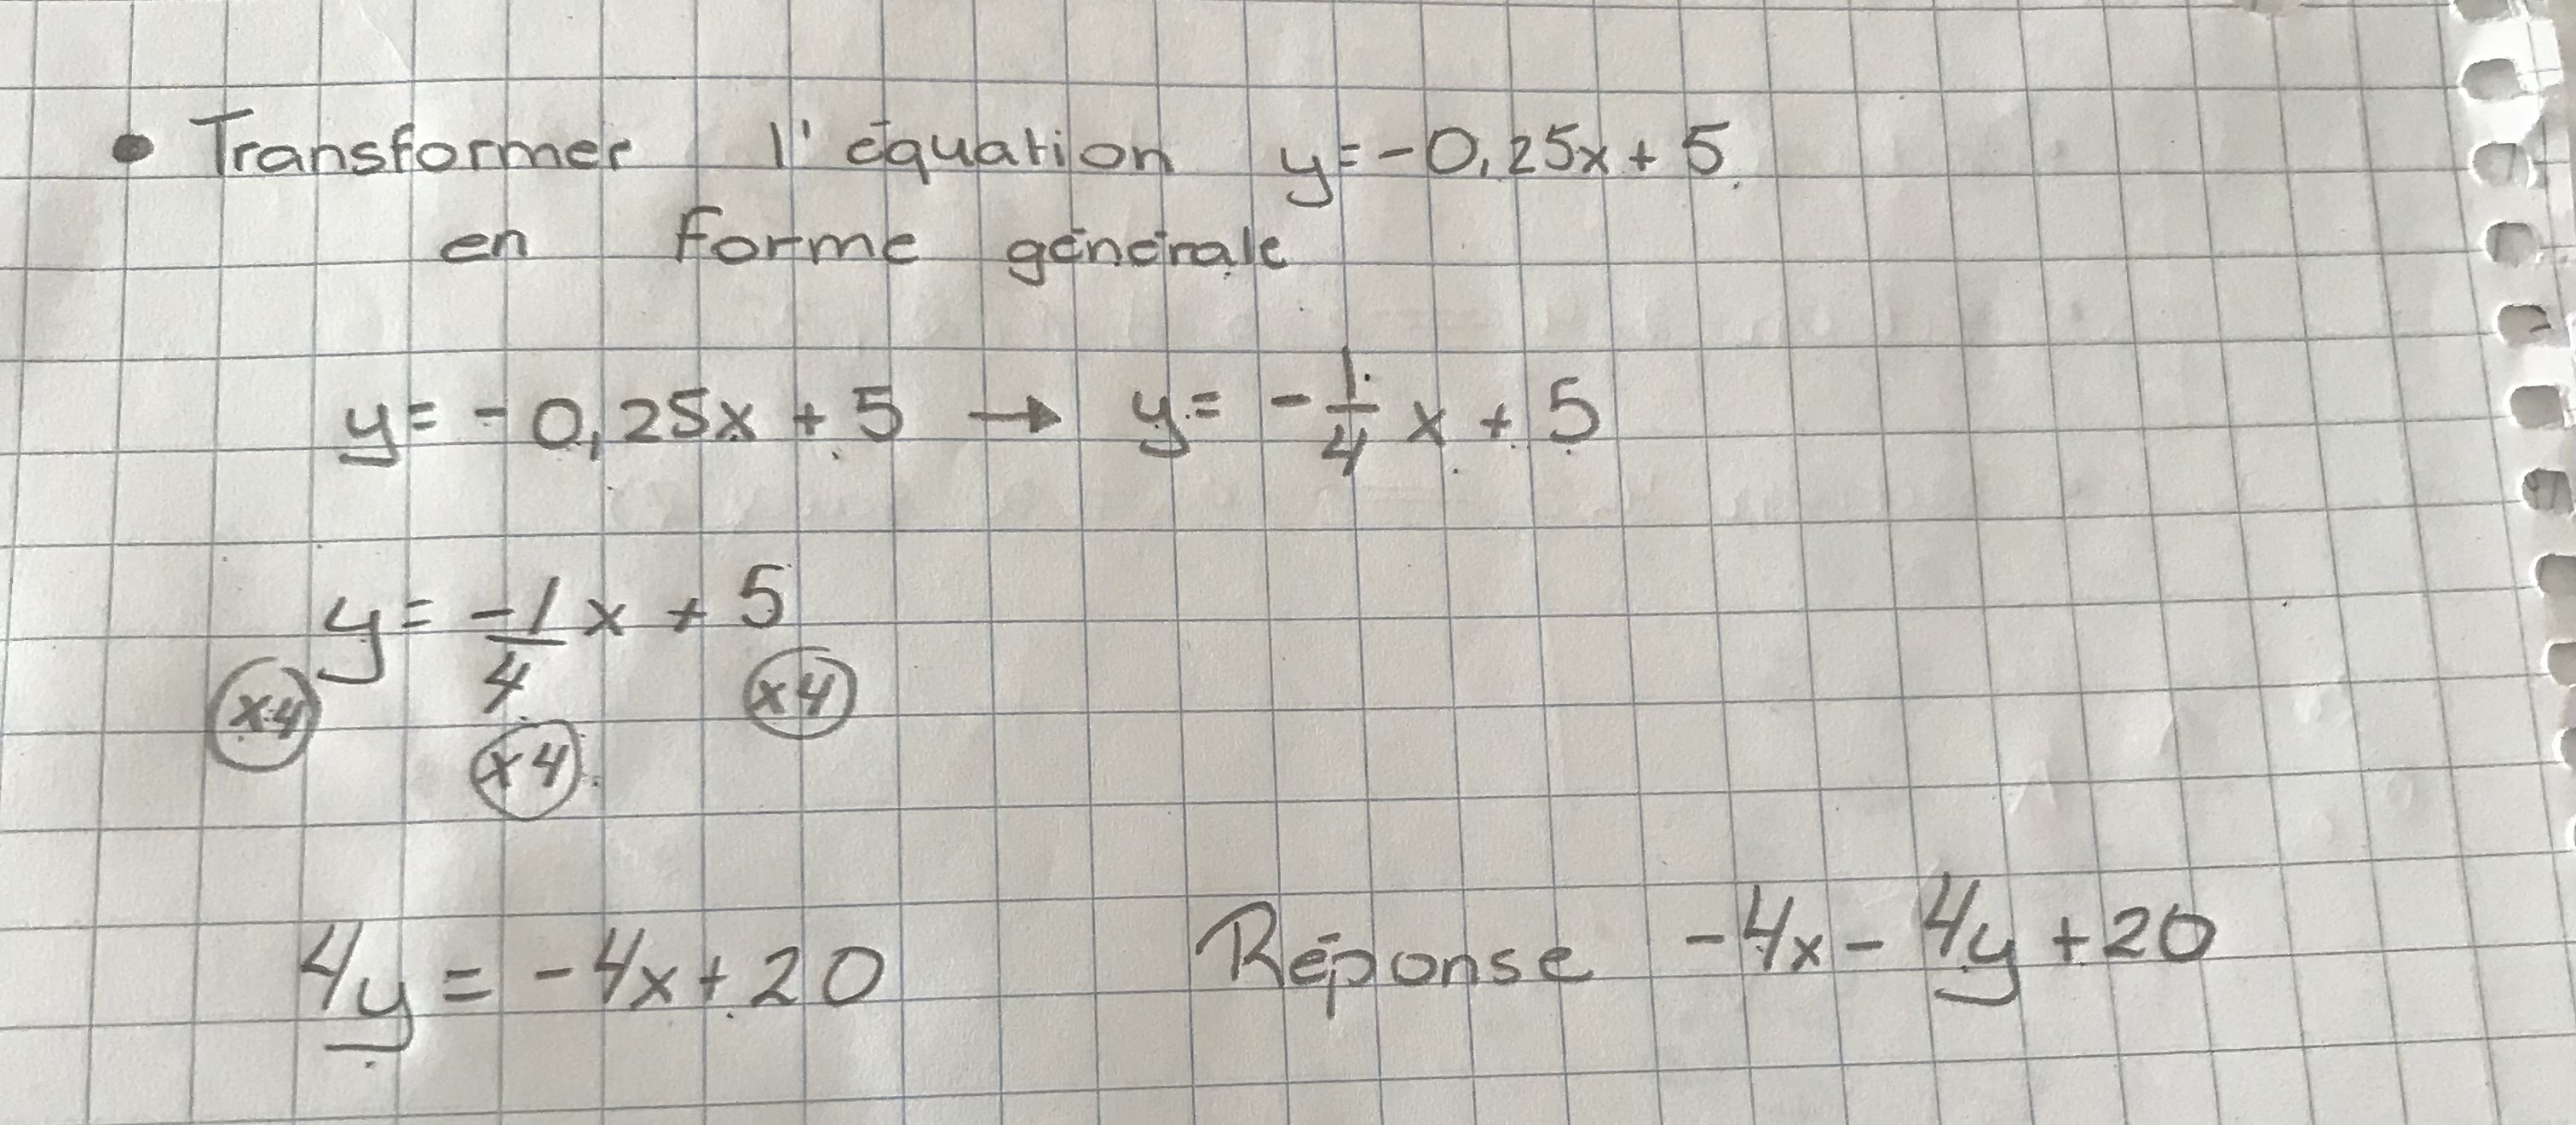 • Transformer l'équation y=-0,25x+5
en forme générale
y=-0,25x+5 → y=-1/4x+5
y=-1/4x+5
x4 x4 x4
4y=-4x+20 Réponse -4x-4y+20